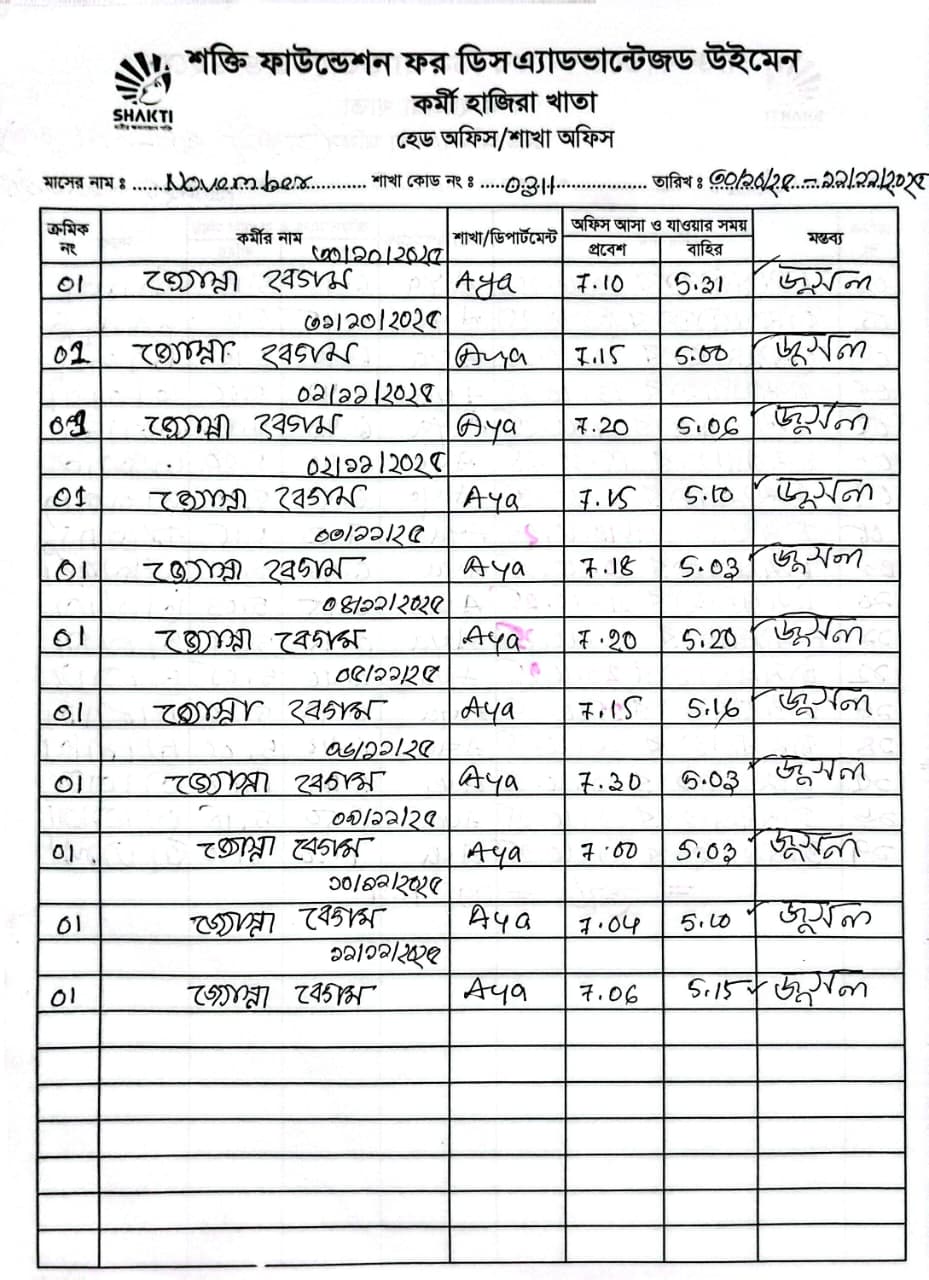 শক্তি ফাউন্ডেশন ফর ডিসএ্যাডভান্টেজড উইমেন
SHAKTI
কর্মী হাজিরা খাতা
হেড অফিস/শাখা অফিস
মাসের নাম ঃ ......November........... শাখা কোড নং ঃ .....0311.................. তারিখ ঃ ৩০/১০/২৫ - ১১/১১/২০২৫
ক্রমিক নং কর্মীর নাম শাখা/ডিপার্টমেন্ট অফিস আসা ও যাওয়ার সময় মন্তব্য
প্রবেশ বাহির
৩০/১০/২০২৫
01 জ্যোস্না বেগম Aya 7.10 5.31
৩১/১০/২০২৫
01 জ্যোস্না বেগম Aya 7.15 5.00
০১/১১/২০২৫
01 জ্যোস্না বেগম Aya 7.20 5.06
০২/১১/২০২৫
01 জ্যোস্না বেগম Aya 7.15 5.10
০৩/১১/২৫
01 জ্যোস্না বেগম Aya 7.18 5.03
০৪/১১/২০২৫
01 জ্যোস্না বেগম Aya 7.20 5.20
০৫/১১/২৫
01 জ্যোস্না বেগম Aya 7.15 5.16
০৬/১১/২৫
01 জ্যোস্না বেগম Aya 7.30 5.03
০৯/১১/২৫
01 জ্যোস্না বেগম Aya 7.00 5.03
১০/১১/২০২৫
01 জ্যোস্না বেগম Aya 7.04 5.10
১১/১১/২০২৫
01 জ্যোস্না বেগম Aya 7.06 5.15